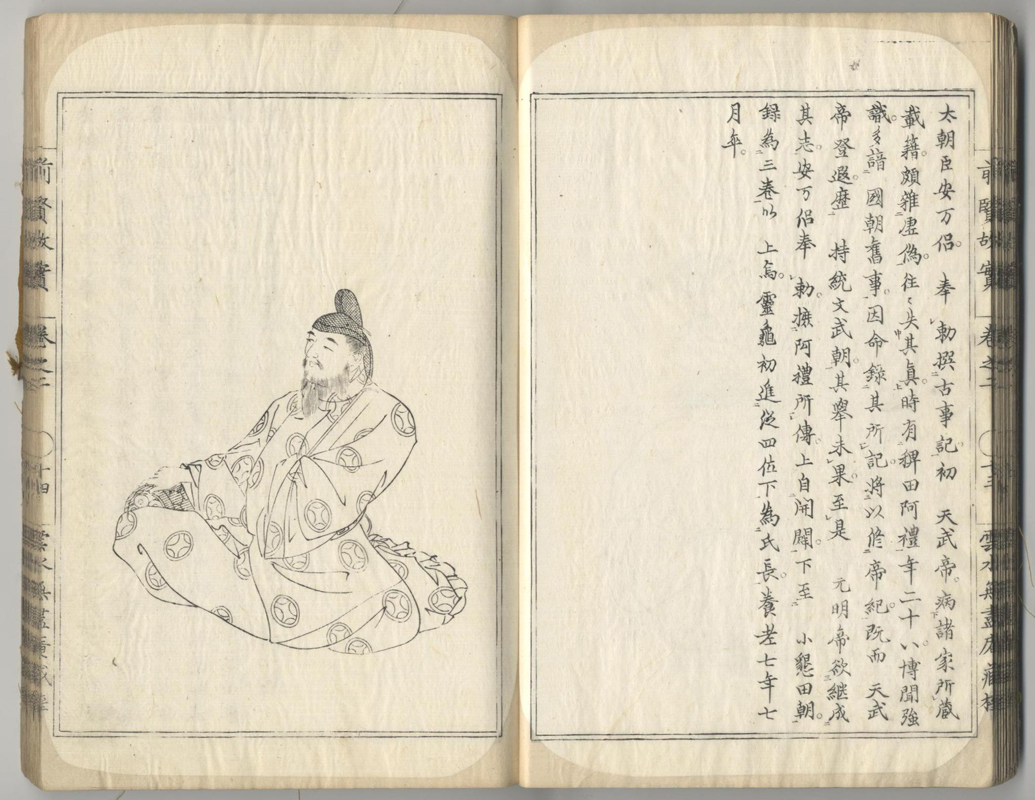 太朝臣安万侶 奉 勅撰古事記初 天武帝病諸家所蔵
載籍頗雜虚偽往〻失其真時有稗田阿禮年二十八博聞強
識多諳 國朝舊事因命錄其所記将以修帝紀既而 天武
帝登遐歴 持統文武朝其舉未果至是 元明帝欲継成
其志安万侶奉 勅撫阿禮所傳上自開闢下至 小懇田朝
録為三巻以 上焉靈龜初進従四位下為氏長養老七年七
月卒
前賢故實 巻之二 十三 雲水無盡庵藏梓
前賢故實 巻之二 十四 雲水無盡庵藏梓